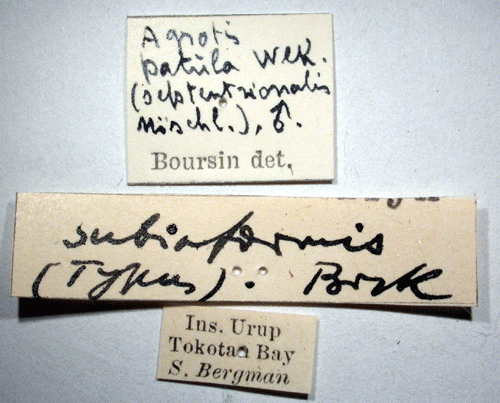 Agrotis
patula Wlk.
(septentrionalis
Möschl.), ♂.
Boursin det.
subiaformis
(Typus). Bryk
Ins. Urup
Tokotan Bay
S. Bergman